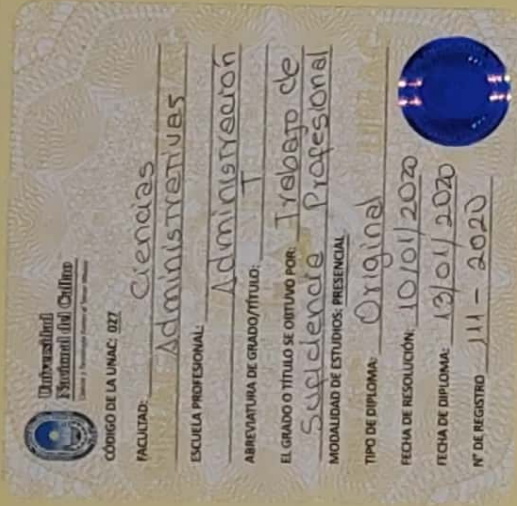 Universidad
Nacional del Callao
CÓDIGO DE LA UNAC: 027
FACULTAD: Ciencias
Administrativas
ESCUELA PROFESIONAL:
Administración
ABREVIATURA DE GRADO/TÍTULO: T
EL GRADO O TÍTULO SE OBTUVO POR: Trabajo de
Suficiencia Profesional
MODALIDAD DE ESTUDIOS: PRESENCIAL
TIPO DE DIPLOMA: Original
FECHA DE RESOLUCIÓN: 10/01/2020
FECHA DE DIPLOMA: 13/01/2020
N° DE REGISTRO 111 - 2020